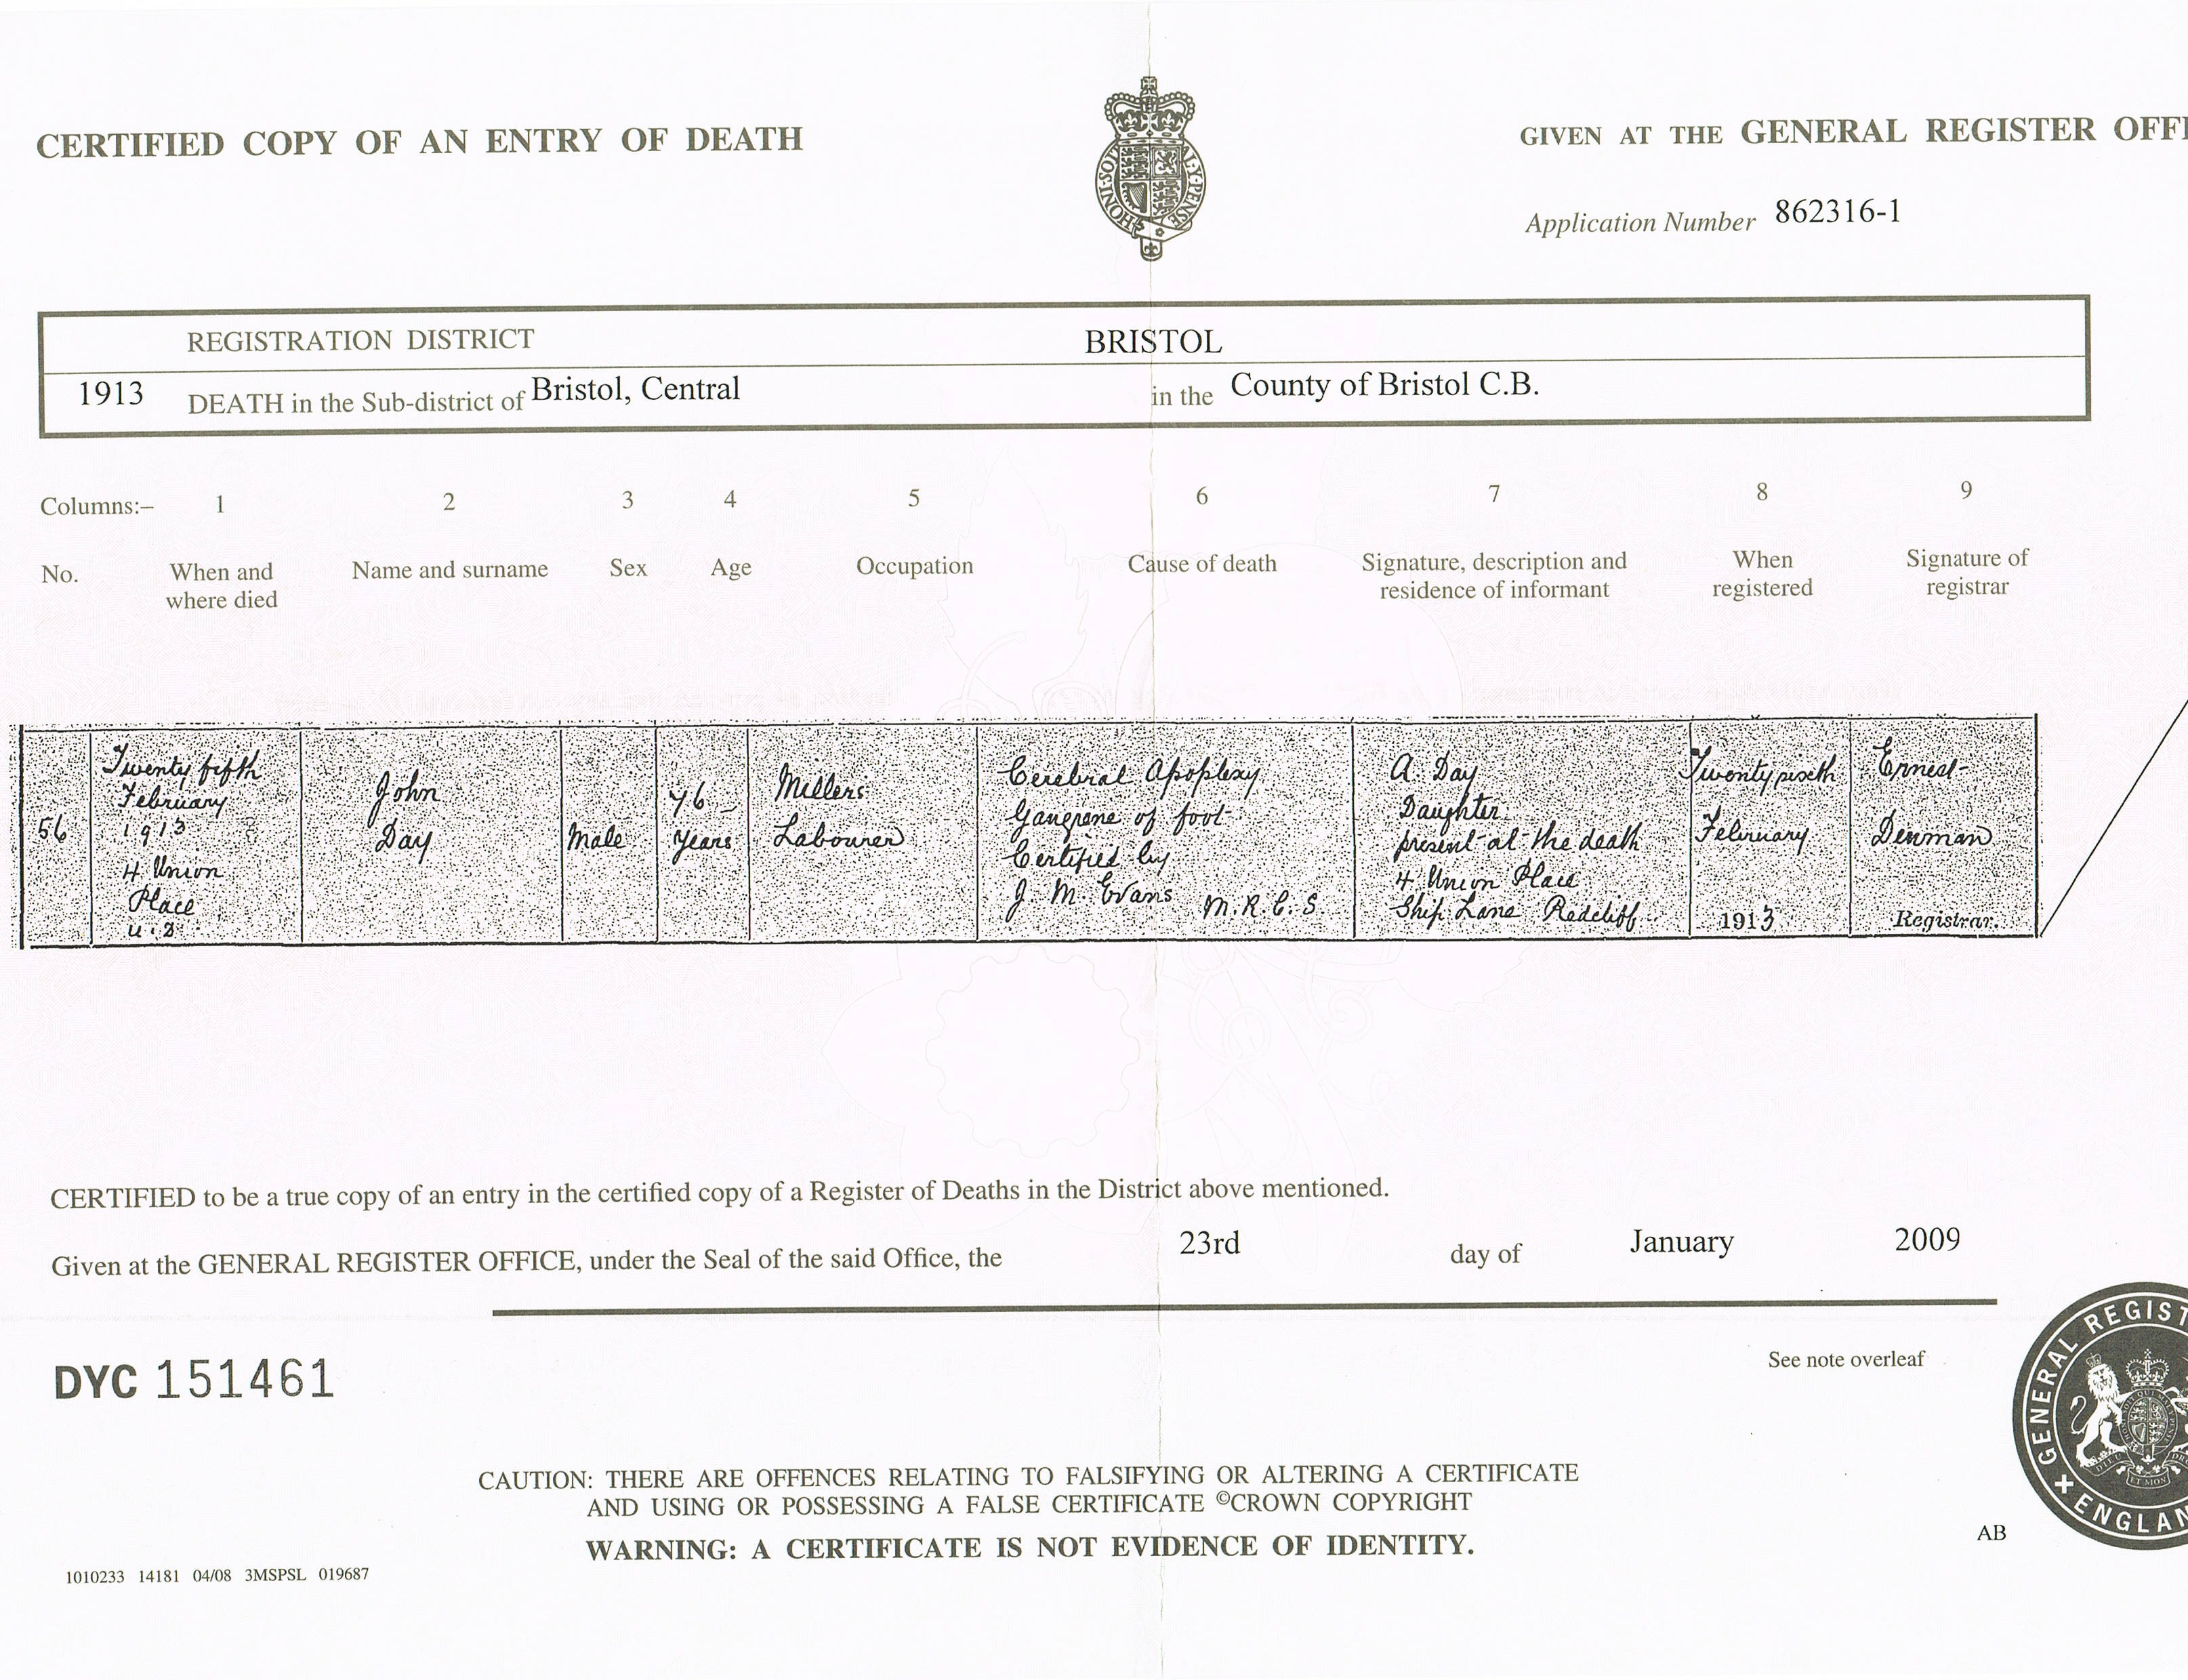 CERTIFIED COPY OF AN ENTRY OF DEATH
GIVEN AT THE GENERAL REGISTER OFFI
HONI·SOIT Y·PENSE
Application Number 862316-1
REGISTRATION DISTRICT BRISTOL
1913 DEATH in the Sub-district of Bristol, Central in the County of Bristol C.B.
Columns:– 1 2 3 4 5 6 7 8 9
No. When and where died Name and surname Sex Age Occupation Cause of death Signature, description and residence of informant When registered Signature of registrar
56
Twenty fifth
February
1913
4 Union
Place
U.D.
John
Day
Male
76
Years
Millers
Labourer
Cerebral Apoplexy
Gangrene of foot
Certified by
J. M. Evans M.R.C.S
A. Day
Daughter
present at the death
4 Union Place
Ship Lane Redcliff
Twenty sixth
February
1913
Ernest
Denman
Registrar.
CERTIFIED to be a true copy of an entry in the certified copy of a Register of Deaths in the District above mentioned.
Given at the GENERAL REGISTER OFFICE, under the Seal of the said Office, the 23rd day of January 2009
DYC 151461
See note overleaf
GENERAL REGIST
ENGLAN
CAUTION: THERE ARE OFFENCES RELATING TO FALSIFYING OR ALTERING A CERTIFICATE
AND USING OR POSSESSING A FALSE CERTIFICATE ©CROWN COPYRIGHT
WARNING: A CERTIFICATE IS NOT EVIDENCE OF IDENTITY.
AB
1010233 14181 04/08 3MSPSL 019687